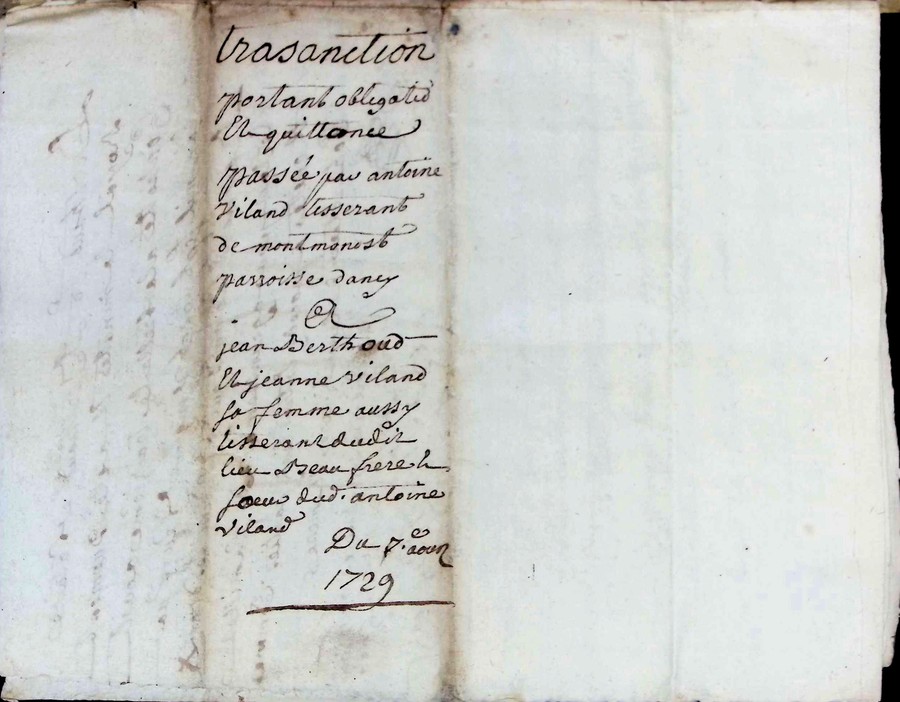 trasanction
portant obligatio
Et quittance
passée par antoine
Viland tisserant
de montmonost
parroisse dancy
Et
jean Berthoud
Et jeanne Viland
sa femme aussy
tisserant dudit
lieu Beau frere &
soeur dud. antoine
Viland
Du 7.e aoust
1729